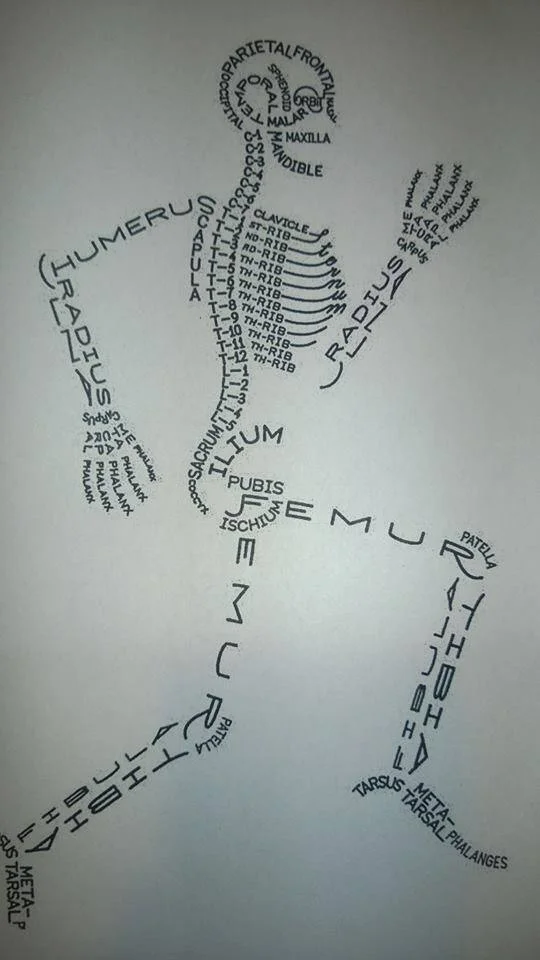 PARIETAL
FRONTAL
OCCIPITAL
TEMPORAL
SPHENOID
ORBIT
NASAL
MALAR
MAXILLA
MANDIBLE
C-1
C-2
C-3
C-4
C-5
C-6
C-7
CLAVICLE
T-1 ST-RIB
T-2 ND-RIB
T-3 RD-RIB
T-4 TH-RIB
T-5 TH-RIB
T-6 TH-RIB
T-7 TH-RIB
T-8 TH-RIB
T-9 TH-RIB
T-10 TH-RIB
T-11 TH-RIB
T-12 TH-RIB
Sternum
SCAPULA
HUMERUS
RADIUS
ULNA
CARPUS
METACARPAL
PHALANX
PHALANX
PHALANX
PHALANX
PHALANX
RADIUS
ULNA
CARPUS
METACARPAL
PHALANX
PHALANX
PHALANX
PHALANX
L-1
L-2
L-3
L-4
L-5
SACRUM
COCCYX
ILIUM
PUBIS
ISCHIUM
FEMUR
PATELLA
TIBIA
FIBULA
TARSUS
META-
TARSAL
PHALANGES
EMUR
PATELLA
TIBIA
FIBULA
SUS
META-
TARSAL
P